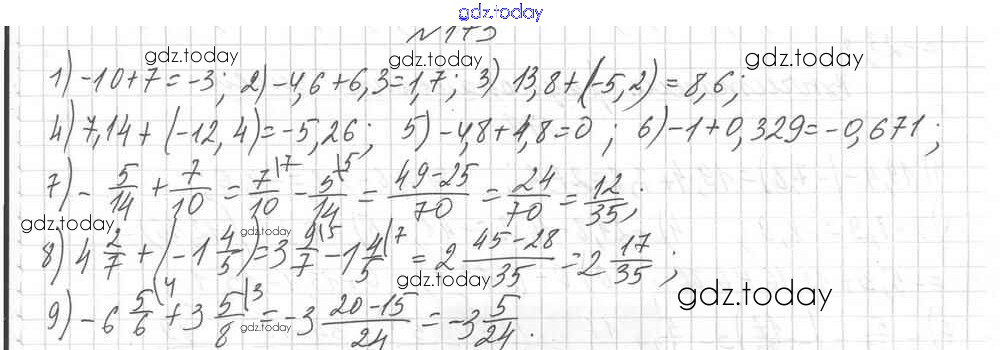 gdz.today
N173
gdz.today gdz.today gdz.today
1) -10+7=-3; 2) -4,6+6,3=1,7; 3) 13,8+(-5,2)=8,6;
4) 7,14+(-12,4)=-5,26; 5) -4,8+4,8=0; 6) -1+0,329=-0,671;
7) -5/14+7/10=7/10\7-5/14\5=(49-25)/70=24/70=12/35;
gdz.today gdz.today gdz.today
8) 4 2/7+(-1 4/5)=3 9/7\5-1 4/5\7=2 (45-28)/35=2 17/35;
gdz.today gdz.today
9) -6 5/6\4+3 5/8\3=-3 (20-15)/24=-3 5/24.
gdz.today